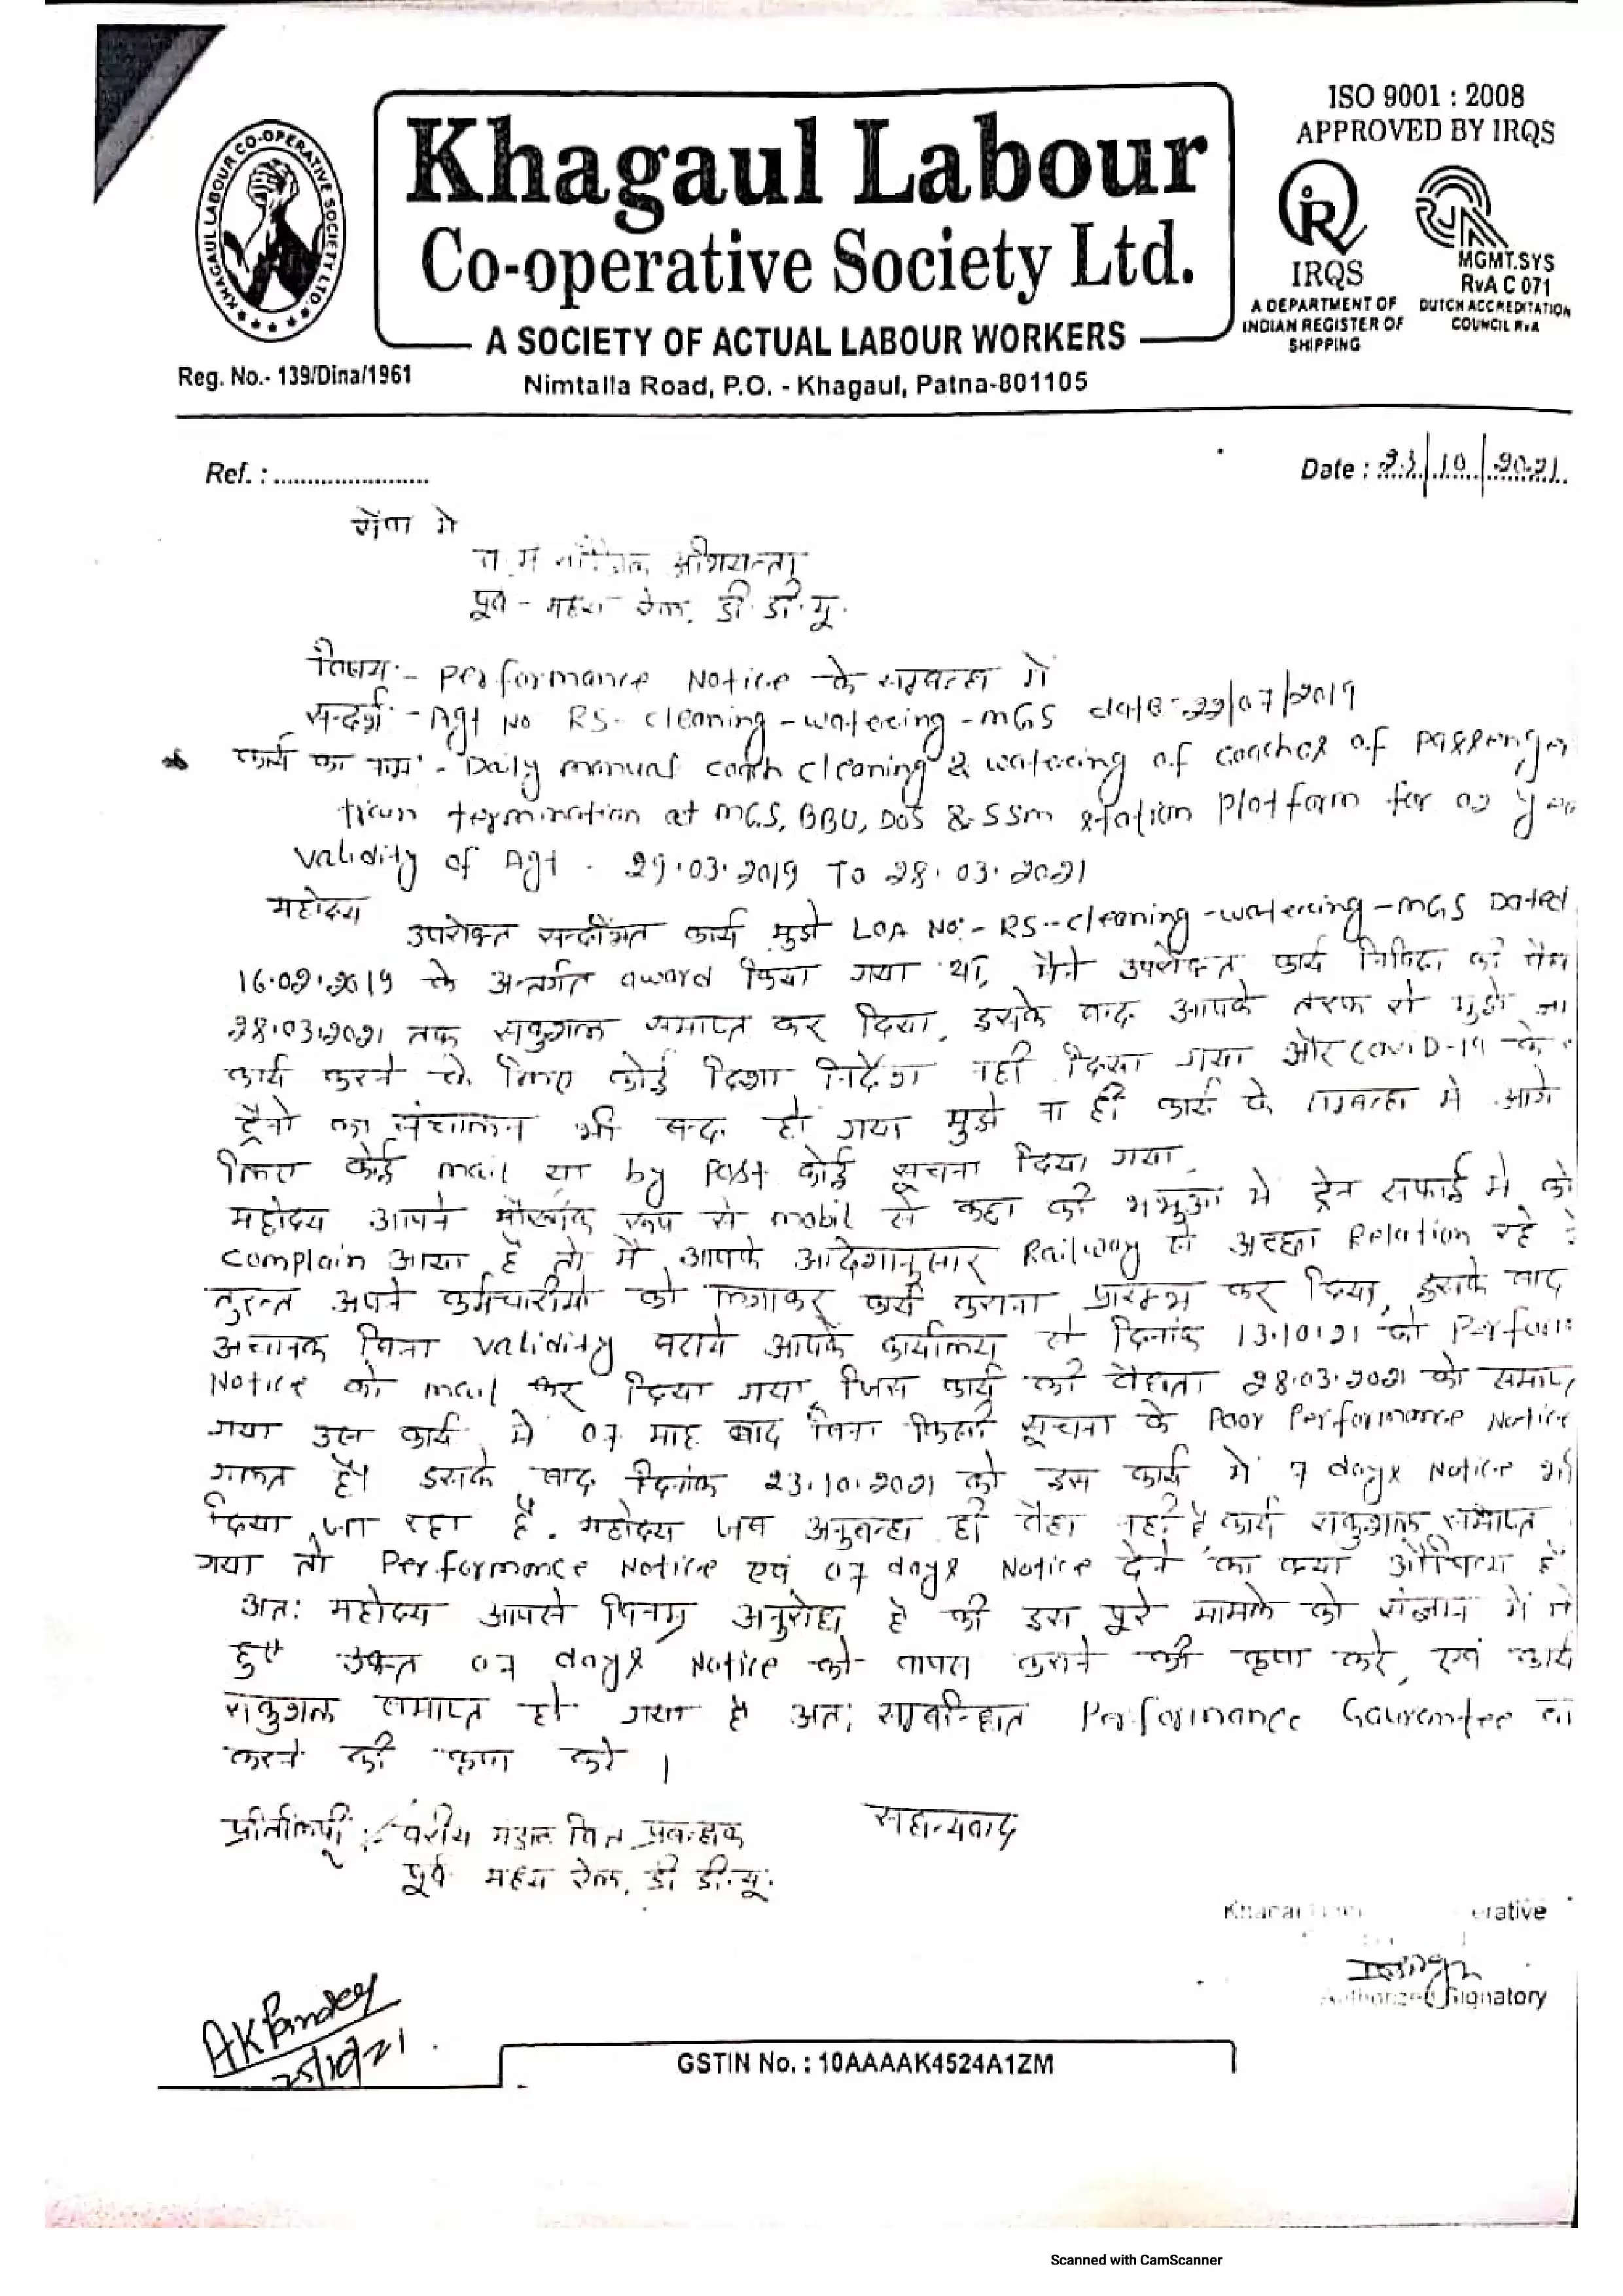 KHAGAUL LABOUR CO-OPERATIVE SOCIETY LTD.
Khagaul Labour
Co-operative Society Ltd.
A SOCIETY OF ACTUAL LABOUR WORKERS
Reg. No.- 139/Dina/1961
Nimtalla Road, P.O. - Khagaul, Patna-801105
ISO 9001 : 2008
APPROVED BY IRQS
IRQS
A DEPARTMENT OF
INDIAN REGISTER OF
SHIPPING
MGMT.SYS
RvA C 071
DUTCH ACCREDITATION
COUNCIL RvA
Ref. :
Date : 23/10/2021
सेवा मे
अभियन्ता
पूर्व - मध्य रेल, डी. डी. यू.
विषय:- Performance Notice के सम्बन्ध में
सन्दर्भ:- Agt No RS- cleaning - watering - MGS date- 22/07/2019
कार्य का नाम:- Daily manual coach cleaning & watering of coaches of passenger
termination at MGS, BBU, DOS & SSM station platform for 02
validity of Agt - 29.03.2019 To 28.03.2021
महोदय
उपरोक्त सन्दर्भित कार्य मुझे LOA No:- RS--cleaning -watering -MGS Dated
16.02.2019 के अन्तर्गत award किया गया था, मैने उपरोक्त कार्य निविदा की
28.03.2021 तक सकुशल समाप्त कर दिया, इसके बाद आपके तरफ से मुझे ना
कार्य करने के लिए कोई दिशा निर्देश नही दिया गया और COVID-19 के
ट्रेनो का संचालन भी बन्द हो गया मुझे ना ही कार्य के सम्बन्ध मे आगे
लिए कोई mail या by Post कोई सूचना दिया गया,
महोदय आपने मौखीक रूप से mobil से कहा की भभुआ मे ट्रेन सफाई मे को
complain आया है तो मै आपके आदेशानुसार Railway से अच्छा Relation रहे
तुरन्त अपने कर्मचारीयो को लगाकर कार्य कराना प्रारम्भ कर दिया, इसके बाद
अचानक बिना validity बढाये आपके कार्यालय से दिनांक 13.10.21 को Perform
Notice को mail कर दिया गया, जिस कार्य की वैधता 28.03.2021 को समाप्त
गया उस कार्य मे 07 माह बाद बिना किसी सूचना के Poor Performance Notice
गलत है। इसके बाद दिनांक 23.10.2021 को इस कार्य मे 7 days Notice भी
दिया जा रहा है. महोदय जब अनुबन्ध ही वैध नही है, कार्य सकुशल समाप्त
गया तो Performance Notice एवं 07 days Notice देने का क्या औचित्य है
अत: महोदय आपसे विनम्र अनुरोध है की इस पूरे मामले को संज्ञान में ले
हुए उक्त 07 days Notice को वापस कराने की कृपा करे, एवं कार्य
सकुशल समाप्त हो गया है अत: सम्बन्धित Performance Gaurantee
करने की कृपा करे ।
सधन्यवाद
प्रतीलिपी :- वरीय मंडल वित्त प्रबन्धक
पूर्व मध्य रेल, डी. डी. यू.
Authorized Signatory
AK Pandey
25/10/21
GSTIN No. : 10AAAAK4524A1ZM
Scanned with CamScanner